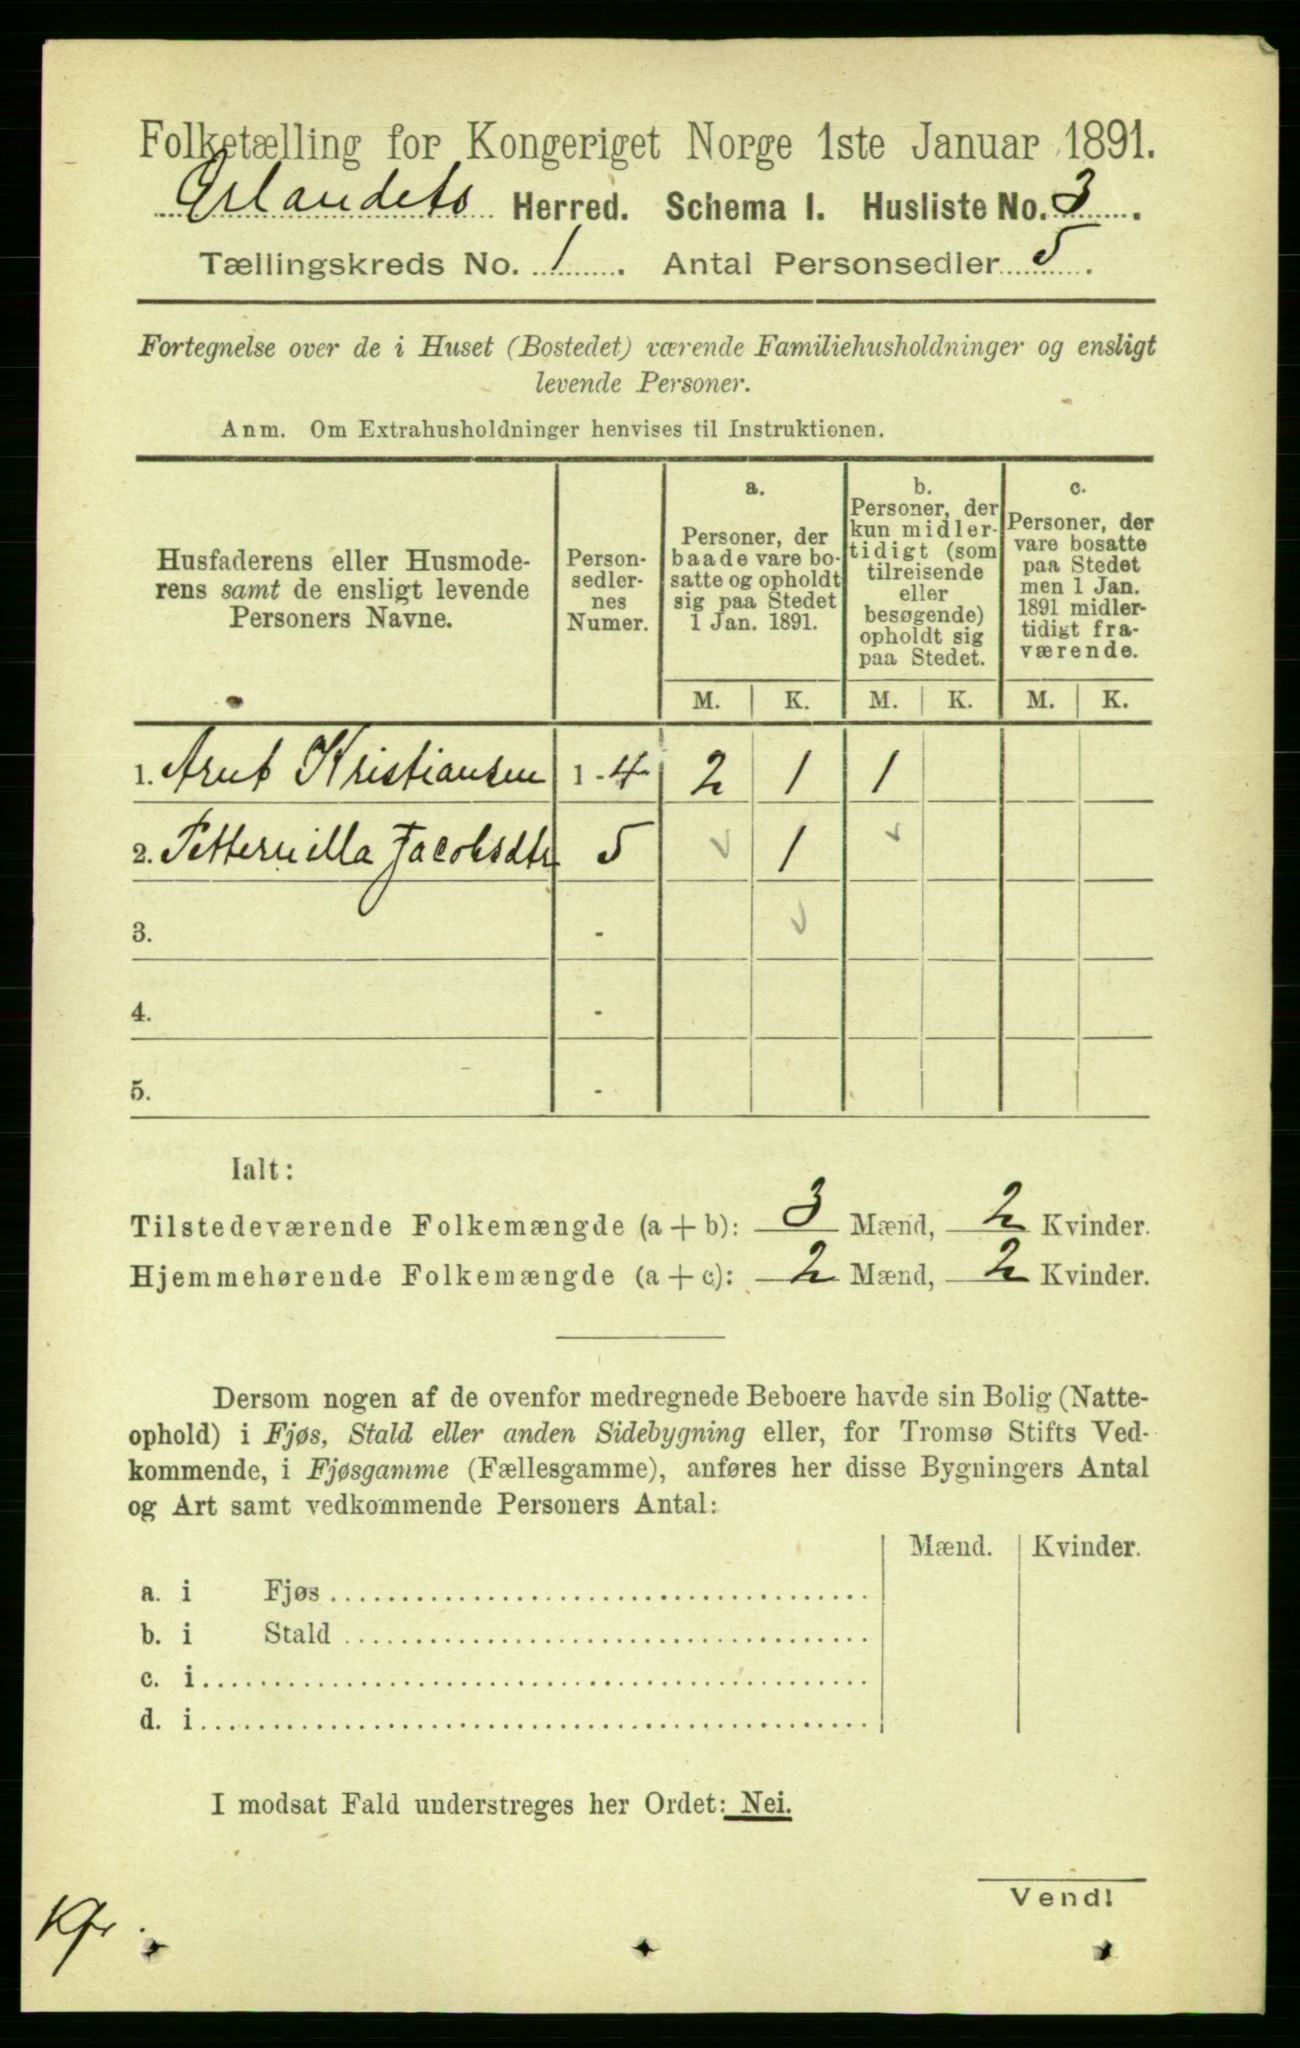 Folketælling for Kongeriget Norge 1ste Januar 1891.
Ørlandets Herred. Schema I. Husliste No. 3.
Tællingskreds No. 1. Antal Personsedler 5.
Fortegnelse over de i Huset (Bostedet) værende Familiehusholdninger og ensligt
levende Personer.
Anm. Om Extrahusholdninger henvises til Instruktionen.
Husfaderens eller Husmode-
rens samt de ensligt levende
Personers Navne.
Person-
sedler-
nes
Numer.
a.
Personer, der
baade vare bo-
satte og opholdt
sig paa Stedet
1 Jan. 1891.
b.
Personer, der
kun midler-
tidigt (som
tilreisende
eller
besøgende)
opholdt sig
paa Stedet.
c.
Personer, der
vare bosatte
paa Stedet
men 1 Jan.
1891 midler-
tidigt fra-
værende.
M. K. M. K. M. K.
1. Arnt Kristiansen 1 - 4 2 1 1
2. Petternilla Jacobsdtr 5 1
3. -
4. -
5. -
Ialt:
Tilstedeværende Folkemængde (a + b): 3 Mænd, 2 Kvinder.
Hjemmehørende Folkemængde (a + c): 2 Mænd, 2 Kvinder.
Dersom nogen af de ovenfor medregnede Beboere havde sin Bolig (Natte-
ophold) i Fjøs, Stald eller anden Sidebygning eller, for Tromsø Stifts Ved-
kommende, i Fjøsgamme (Fællesgamme), anføres her disse Bygningers Antal
og Art samt vedkommende Personers Antal:
Mænd. Kvinder.
a. i Fjøs
b. i Stald
c. i
d. i
I modsat Fald understreges her Ordet: Nei.
Vend!